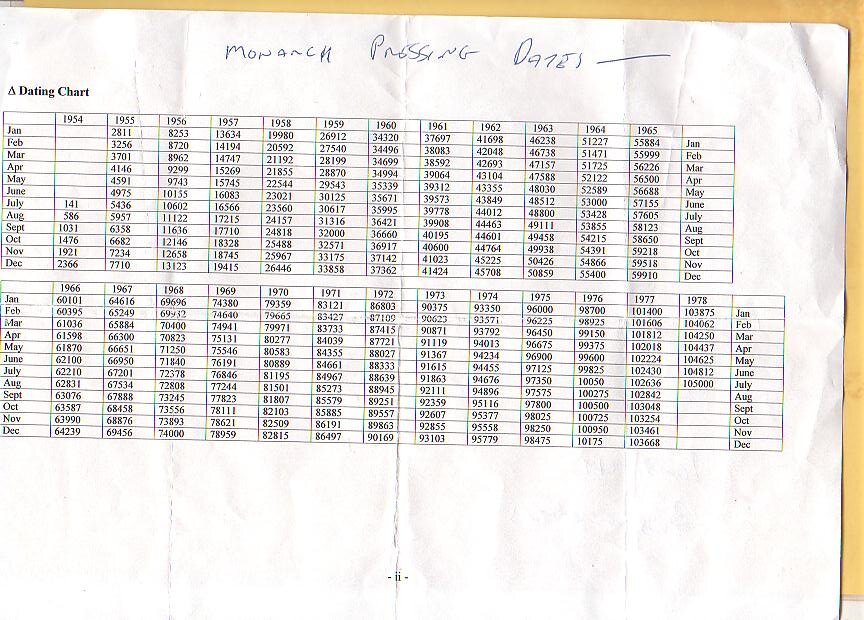 MONARCH PRESSING DATES
Δ Dating Chart
1954 1955 1956 1957 1958 1959 1960 1961 1962 1963 1964 1965
Jan 2811 8253 13634 19980 26912 34320 37697 41698 46238 51227 55884 Jan
Feb 3256 8720 14194 20592 27540 34496 38083 42048 46738 51471 55999 Feb
Mar 3701 8962 14747 21192 28199 34699 38592 42693 47157 51725 56226 Mar
Apr 4146 9299 15269 21855 28870 34994 39064 43104 47588 52122 56500 Apr
May 4591 9743 15745 22544 29543 35339 39312 43355 48030 52589 56688 May
June 4975 10155 16083 23021 30125 35671 39573 43849 48512 53000 57155 June
July 141 5436 10602 16566 23560 30617 35995 39778 44012 48800 53428 57605 July
Aug 586 5957 11122 17215 24157 31316 36421 39908 44463 49111 53855 58123 Aug
Sept 1031 6358 11636 17710 24818 32000 36660 40195 44601 49458 54215 58650 Sept
Oct 1476 6682 12146 18328 25488 32571 36917 40600 44764 49938 54391 59218 Oct
Nov 1921 7234 12658 18745 25967 33175 37142 41023 45225 50426 54866 59518 Nov
Dec 2366 7710 13123 19415 26446 33858 37362 41424 45708 50859 55400 59910 Dec
1966 1967 1968 1969 1970 1971 1972 1973 1974 1975 1976 1977 1978
Jan 60101 64616 69696 74380 79359 83121 86803 90375 93350 96000 98700 101400 103875 Jan
Feb 60395 65249 69932 74640 79665 83427 87109 90623 93571 96225 98925 101606 104062 Feb
Mar 61036 65884 70400 74941 79971 83733 87415 90871 93792 96450 99150 101812 104250 Mar
Apr 61598 66300 70823 75131 80277 84039 87721 91119 94013 96675 99375 102018 104437 Apr
May 61870 66651 71250 75546 80583 84355 88027 91367 94234 96900 99600 102224 104625 May
June 62100 66950 71840 76191 80889 84661 88333 91615 94455 97125 99825 102430 104812 June
July 62210 67201 72378 76846 81195 84967 88639 91863 94676 97350 10050 102636 105000 July
Aug 62831 67534 72808 77244 81501 85273 88945 92111 94896 97575 100275 102842 Aug
Sept 63076 67888 73245 77823 81807 85579 89251 92359 95116 97800 100500 103048 Sept
Oct 63587 68458 73556 78111 82103 85885 89557 92607 95377 98025 100725 103254 Oct
Nov 63990 68876 73893 78621 82509 86191 89863 92855 95558 98250 100950 103461 Nov
Dec 64239 69456 74000 78959 82815 86497 90169 93103 95779 98475 10175 103668 Dec
- ii -